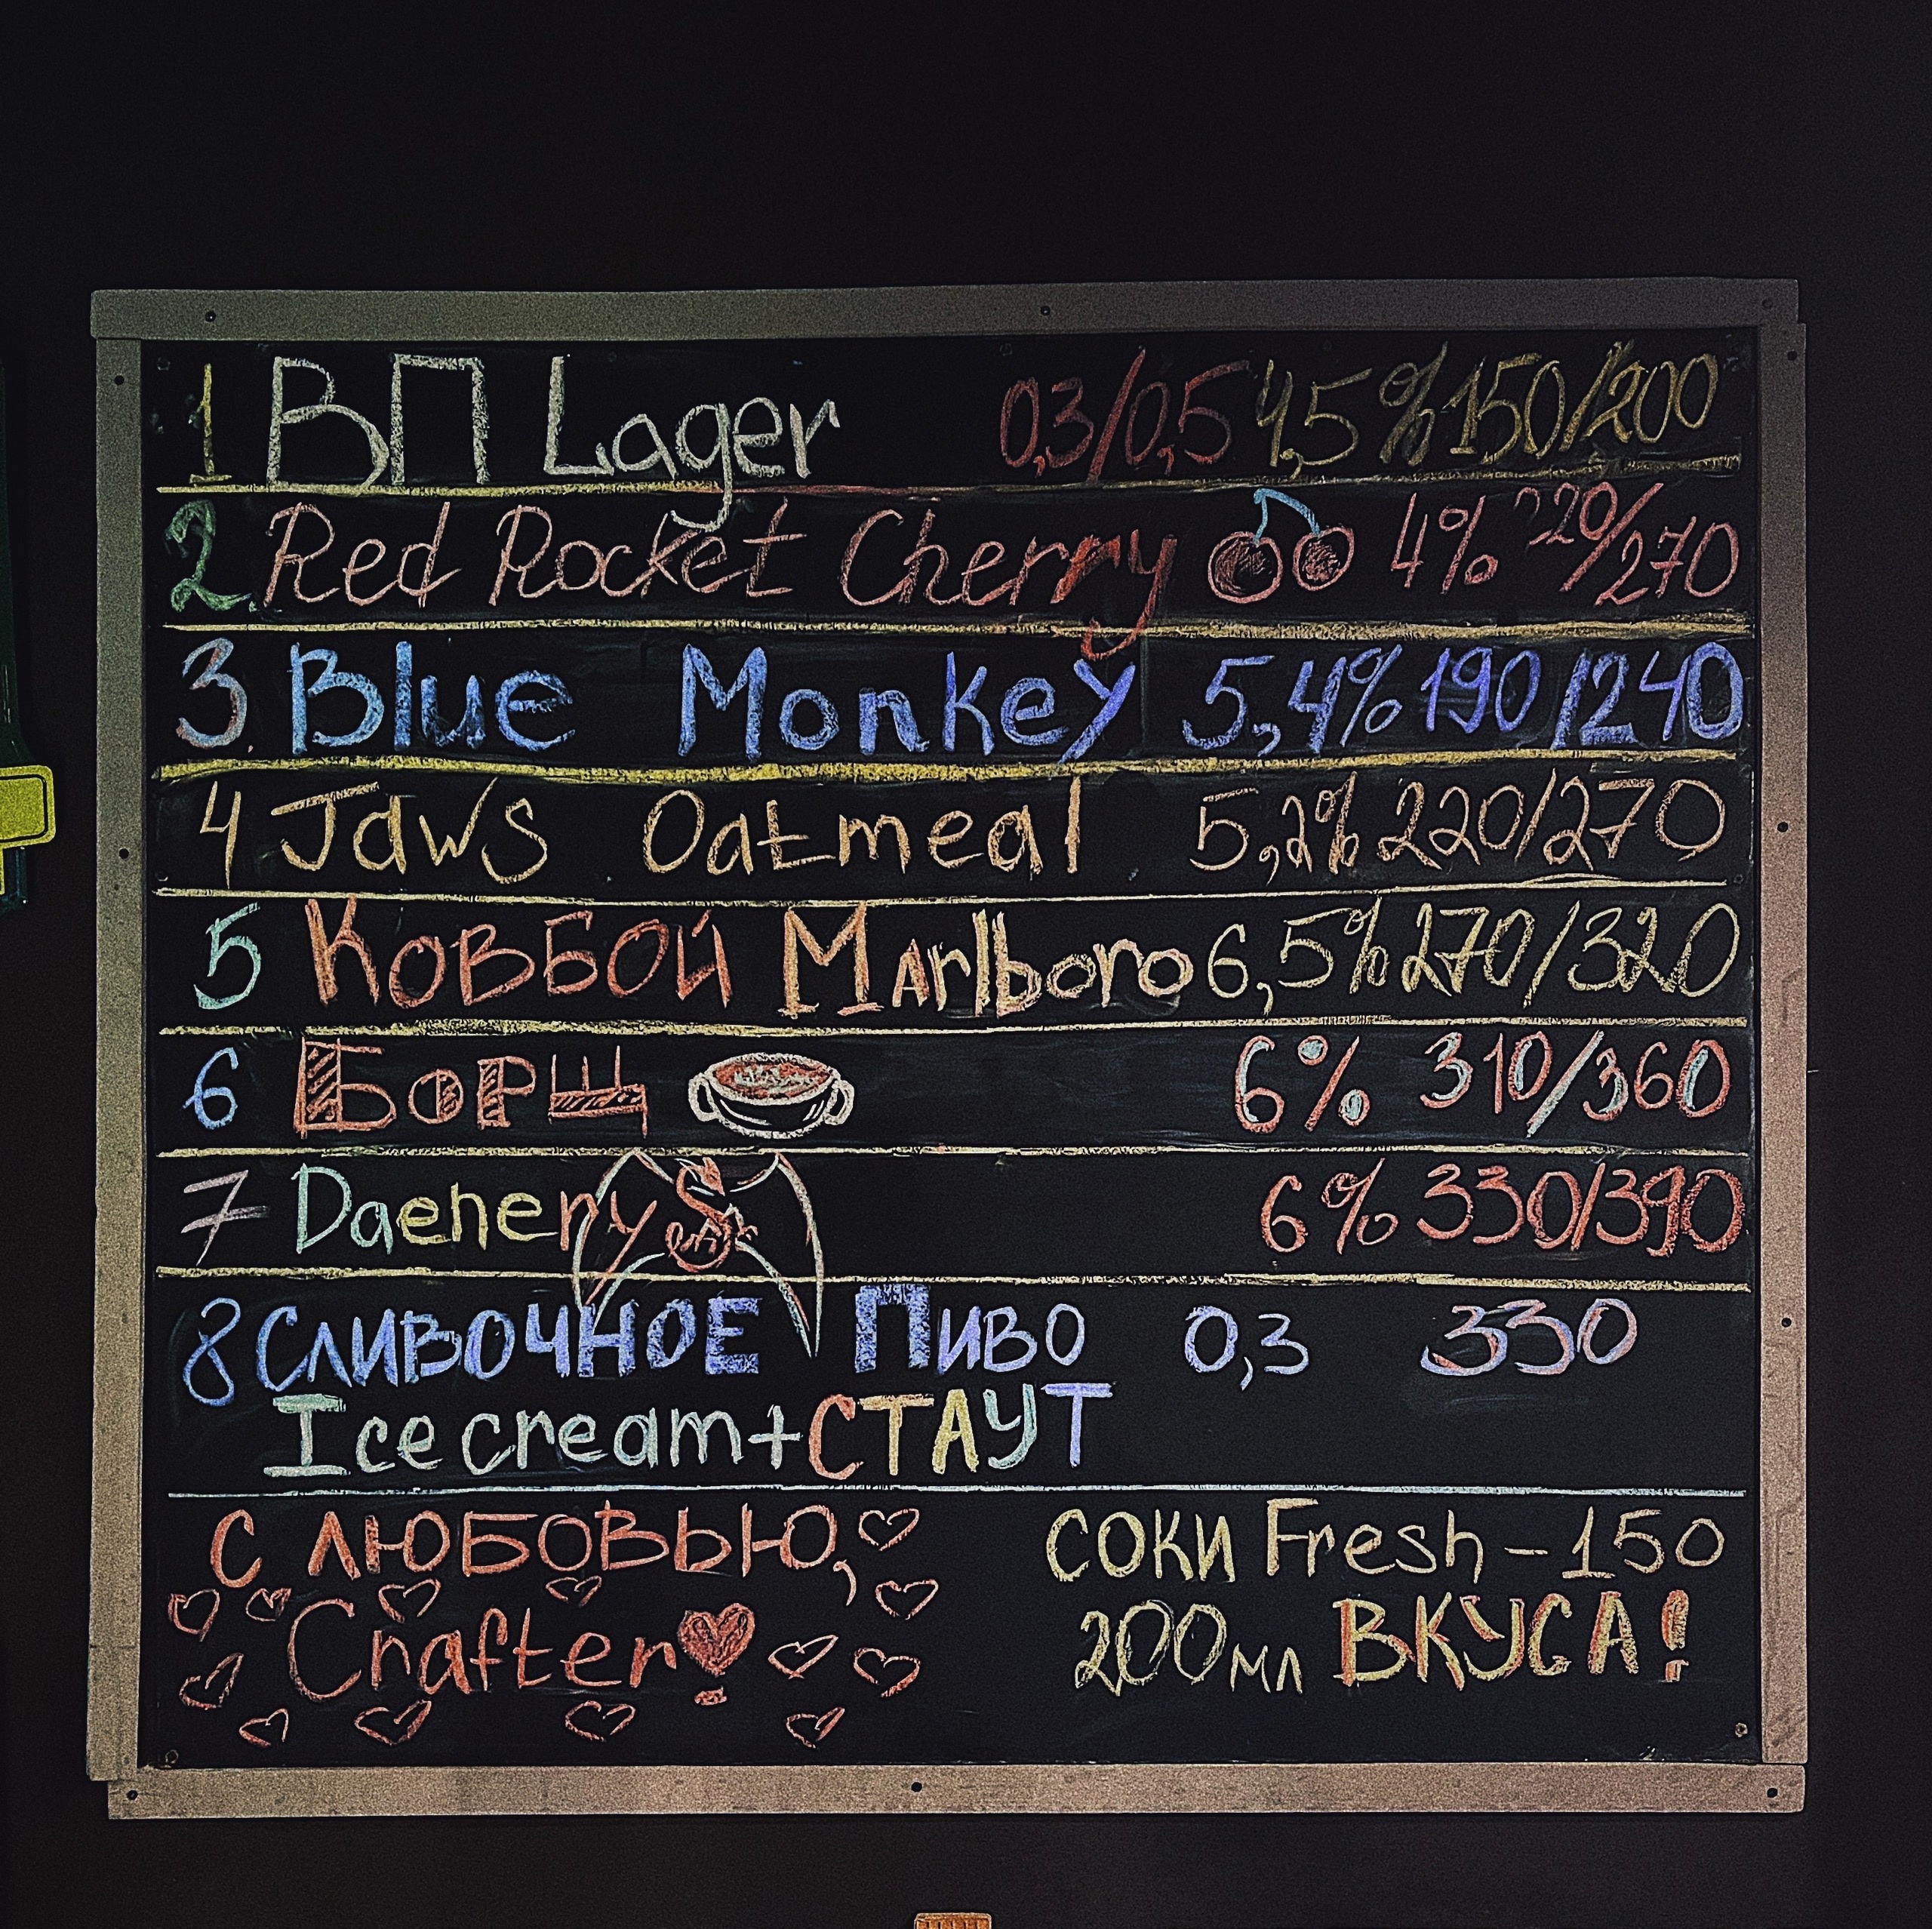 1 ВП Lager 0,3/0,5 4,5% 150/200
2. Red Rocket Cherry 4% 220/270
3. Blue Monkey 5,4% 190/240
4 Jaws Oatmeal 5,2% 220/270
5 Ковбой Marlboro 6,5% 270/320
6 Борщ 6% 310/360
7 Daenerys 6% 330/390
8 Сливочное Пиво 0,3 330
Ice cream+СТАУТ
С ЛЮБОВЬЮ,
Crafter
СОКИ Fresh-150
200мл ВКУСА!